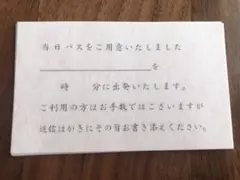 当日バスをご用意いたしました
を
時 分に出発いたします。
ご利用の方はお手数ではございますが
返信はがきにその旨お書き添えください。